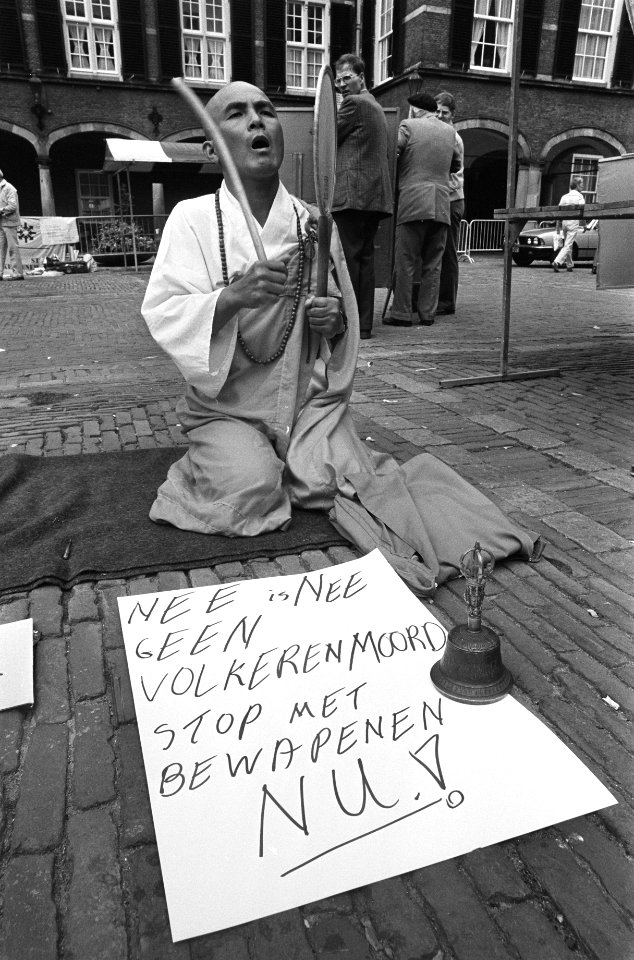 NEE is NEE
GEEN
VOLKERENMOORD
STOP MET
BEWAPENEN
NU.!